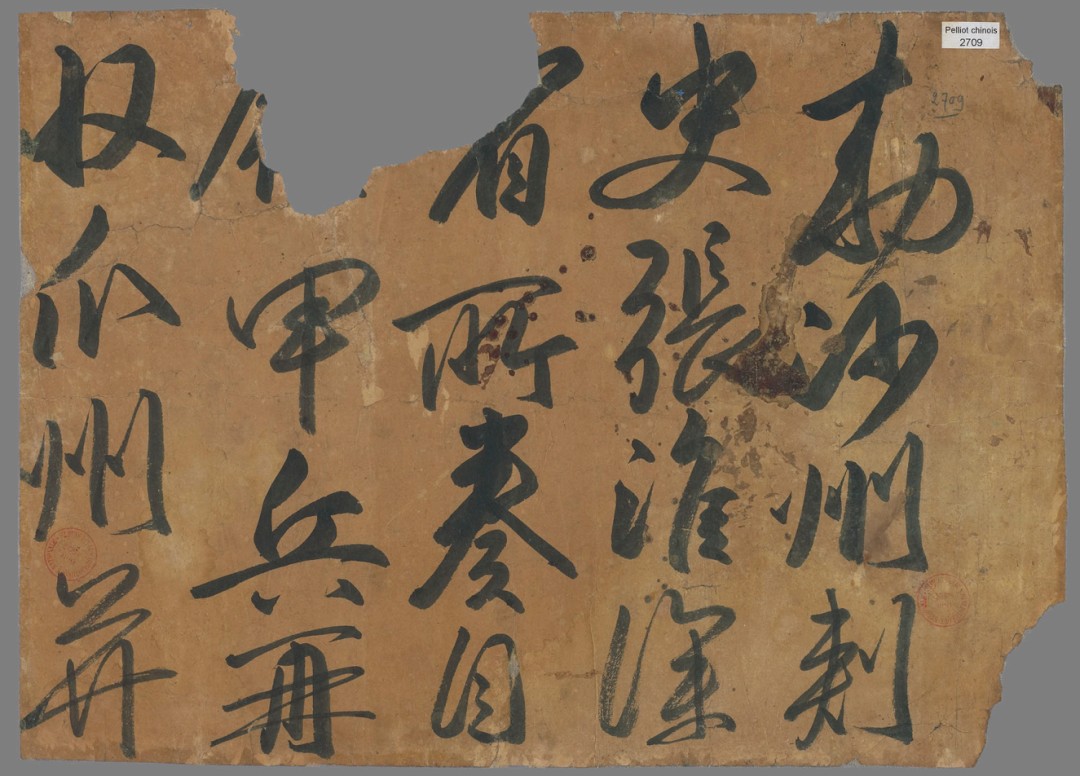 Pelliot chinois
2709
2709
勅沙州刺
史張淮深
所奏自
甲兵再
収瓜州并